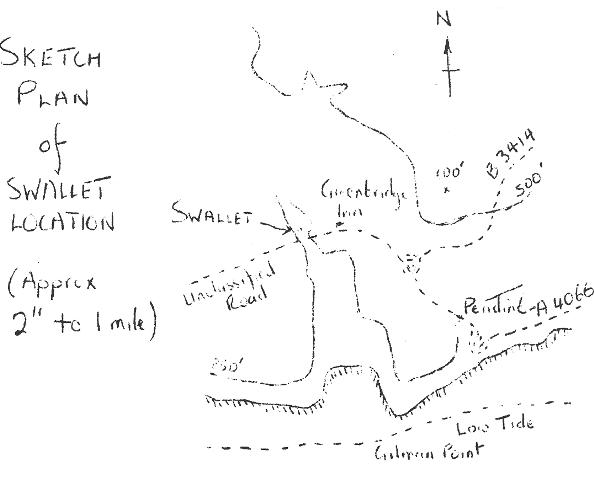 SKETCH
PLAN
of
SWALLET
LOCATION
(Approx
2" to 1 mile)
N
B 3414
500'
Greenbridge
Inn
SWALLET
Unclassified
Road
A 4066
LOW TIDE
Gilman Point